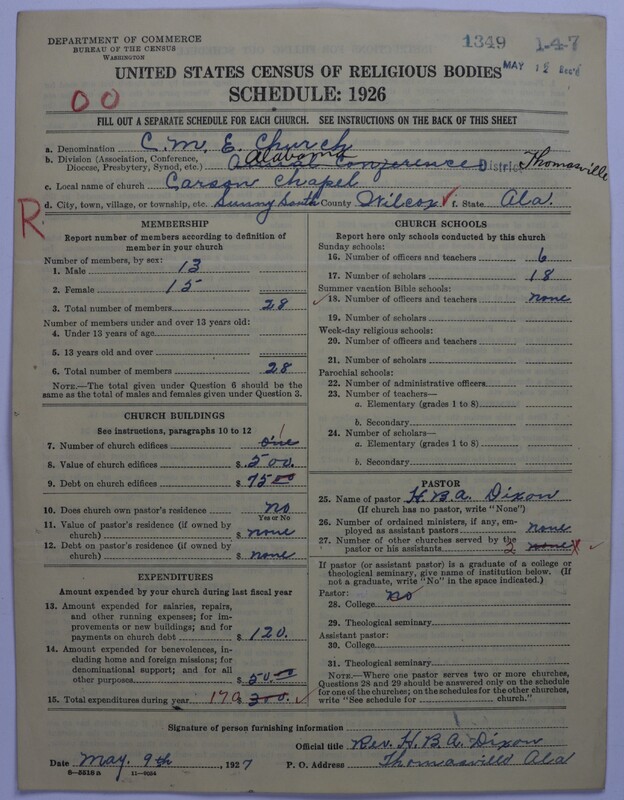 DEPARTMENT OF COMMERCE
BUREAU OF THE CENSUS
WASHINGTON
1349 1-4-7
MAY 12
UNITED STATES CENSUS OF RELIGIOUS BODIES
SCHEDULE: 1926
OO
FILL OUT A SEPARATE SCHEDULE FOR EACH CHURCH. SEE INSTRUCTIONS ON THE BACK OF THIS SHEET
a. Denomination C. M. E. Church
b. Division (Association, Conference, Diocese, Presbytery, Synod, etc.) Alabama Conference District Thomasville
c. Local name of church Carson Chapel
d. City, town, village, or township, etc. Sunny South County Wilcox f. State Ala.
R
MEMBERSHIP
Report number of members according to definition of
member in your church
Number of members, by sex:
1. Male 13
2. Female 15
3. Total number of members 28
Number of members under and over 13 years old:
4. Under 13 years of age
5. 13 years old and over
6. Total number of members 28
NOTE.—The total given under Question 6 should be
the same as the total of males and females given under Question 3.
CHURCH BUILDINGS
See instructions, paragraphs 10 to 12
7. Number of church edifices one 1
8. Value of church edifices $ 500.
9. Debt on church edifices $ 75.00
10. Does church own pastor's residence no
Yes or No
11. Value of pastor's residence (if owned by
church) $ none
12. Debt on pastor's residence (if owned by
church) $ none
EXPENDITURES
Amount expended by your church during last fiscal year
13. Amount expended for salaries, repairs,
and other running expenses; for im-
provements or new buildings; and for
payments on church debt $ 120.
14. Amount expended for benevolences,
including home and foreign missions; for
denominational support; and for all
other purposes $ 50.00
15. Total expenditures during year 170 $ 300.
CHURCH SCHOOLS
Report here only schools conducted by this church
Sunday schools:
16. Number of officers and teachers 6
17. Number of scholars 18
Summer vacation Bible schools:
18. Number of officers and teachers none
19. Number of scholars
Week-day religious schools:
20. Number of officers and teachers
21. Number of scholars
Parochial schools:
22. Number of administrative officers
23. Number of teachers—
a. Elementary (grades 1 to 8)
b. Secondary
24. Number of scholars—
a. Elementary (grades 1 to 8)
b. Secondary
PASTOR
25. Name of pastor H. B. A. Dixon
(If church has no pastor, write "None")
26. Number of ordained ministers, if any, em-
ployed as assistant pastors none
27. Number of other churches served by the
pastor or his assistants 2 none x
If pastor (or assistant pastor) is a graduate of a college or
theological seminary, give name of institution below. (If
not a graduate, write "No" in the space indicated.)
Pastor: no
28. College
29. Theological seminary
Assistant pastor:
30. College
31. Theological seminary
NOTE.—Where one pastor serves two or more churches,
Questions 28 and 29 should be answered only on the schedule
for one of the churches; on the schedules for the other churches,
write "See schedule for church."
Signature of person furnishing information
Official title Rev. H. B. A. Dixon
Date May. 9th, 1927 P. O. Address Thomasville Ala
8-5518 a 11-9054